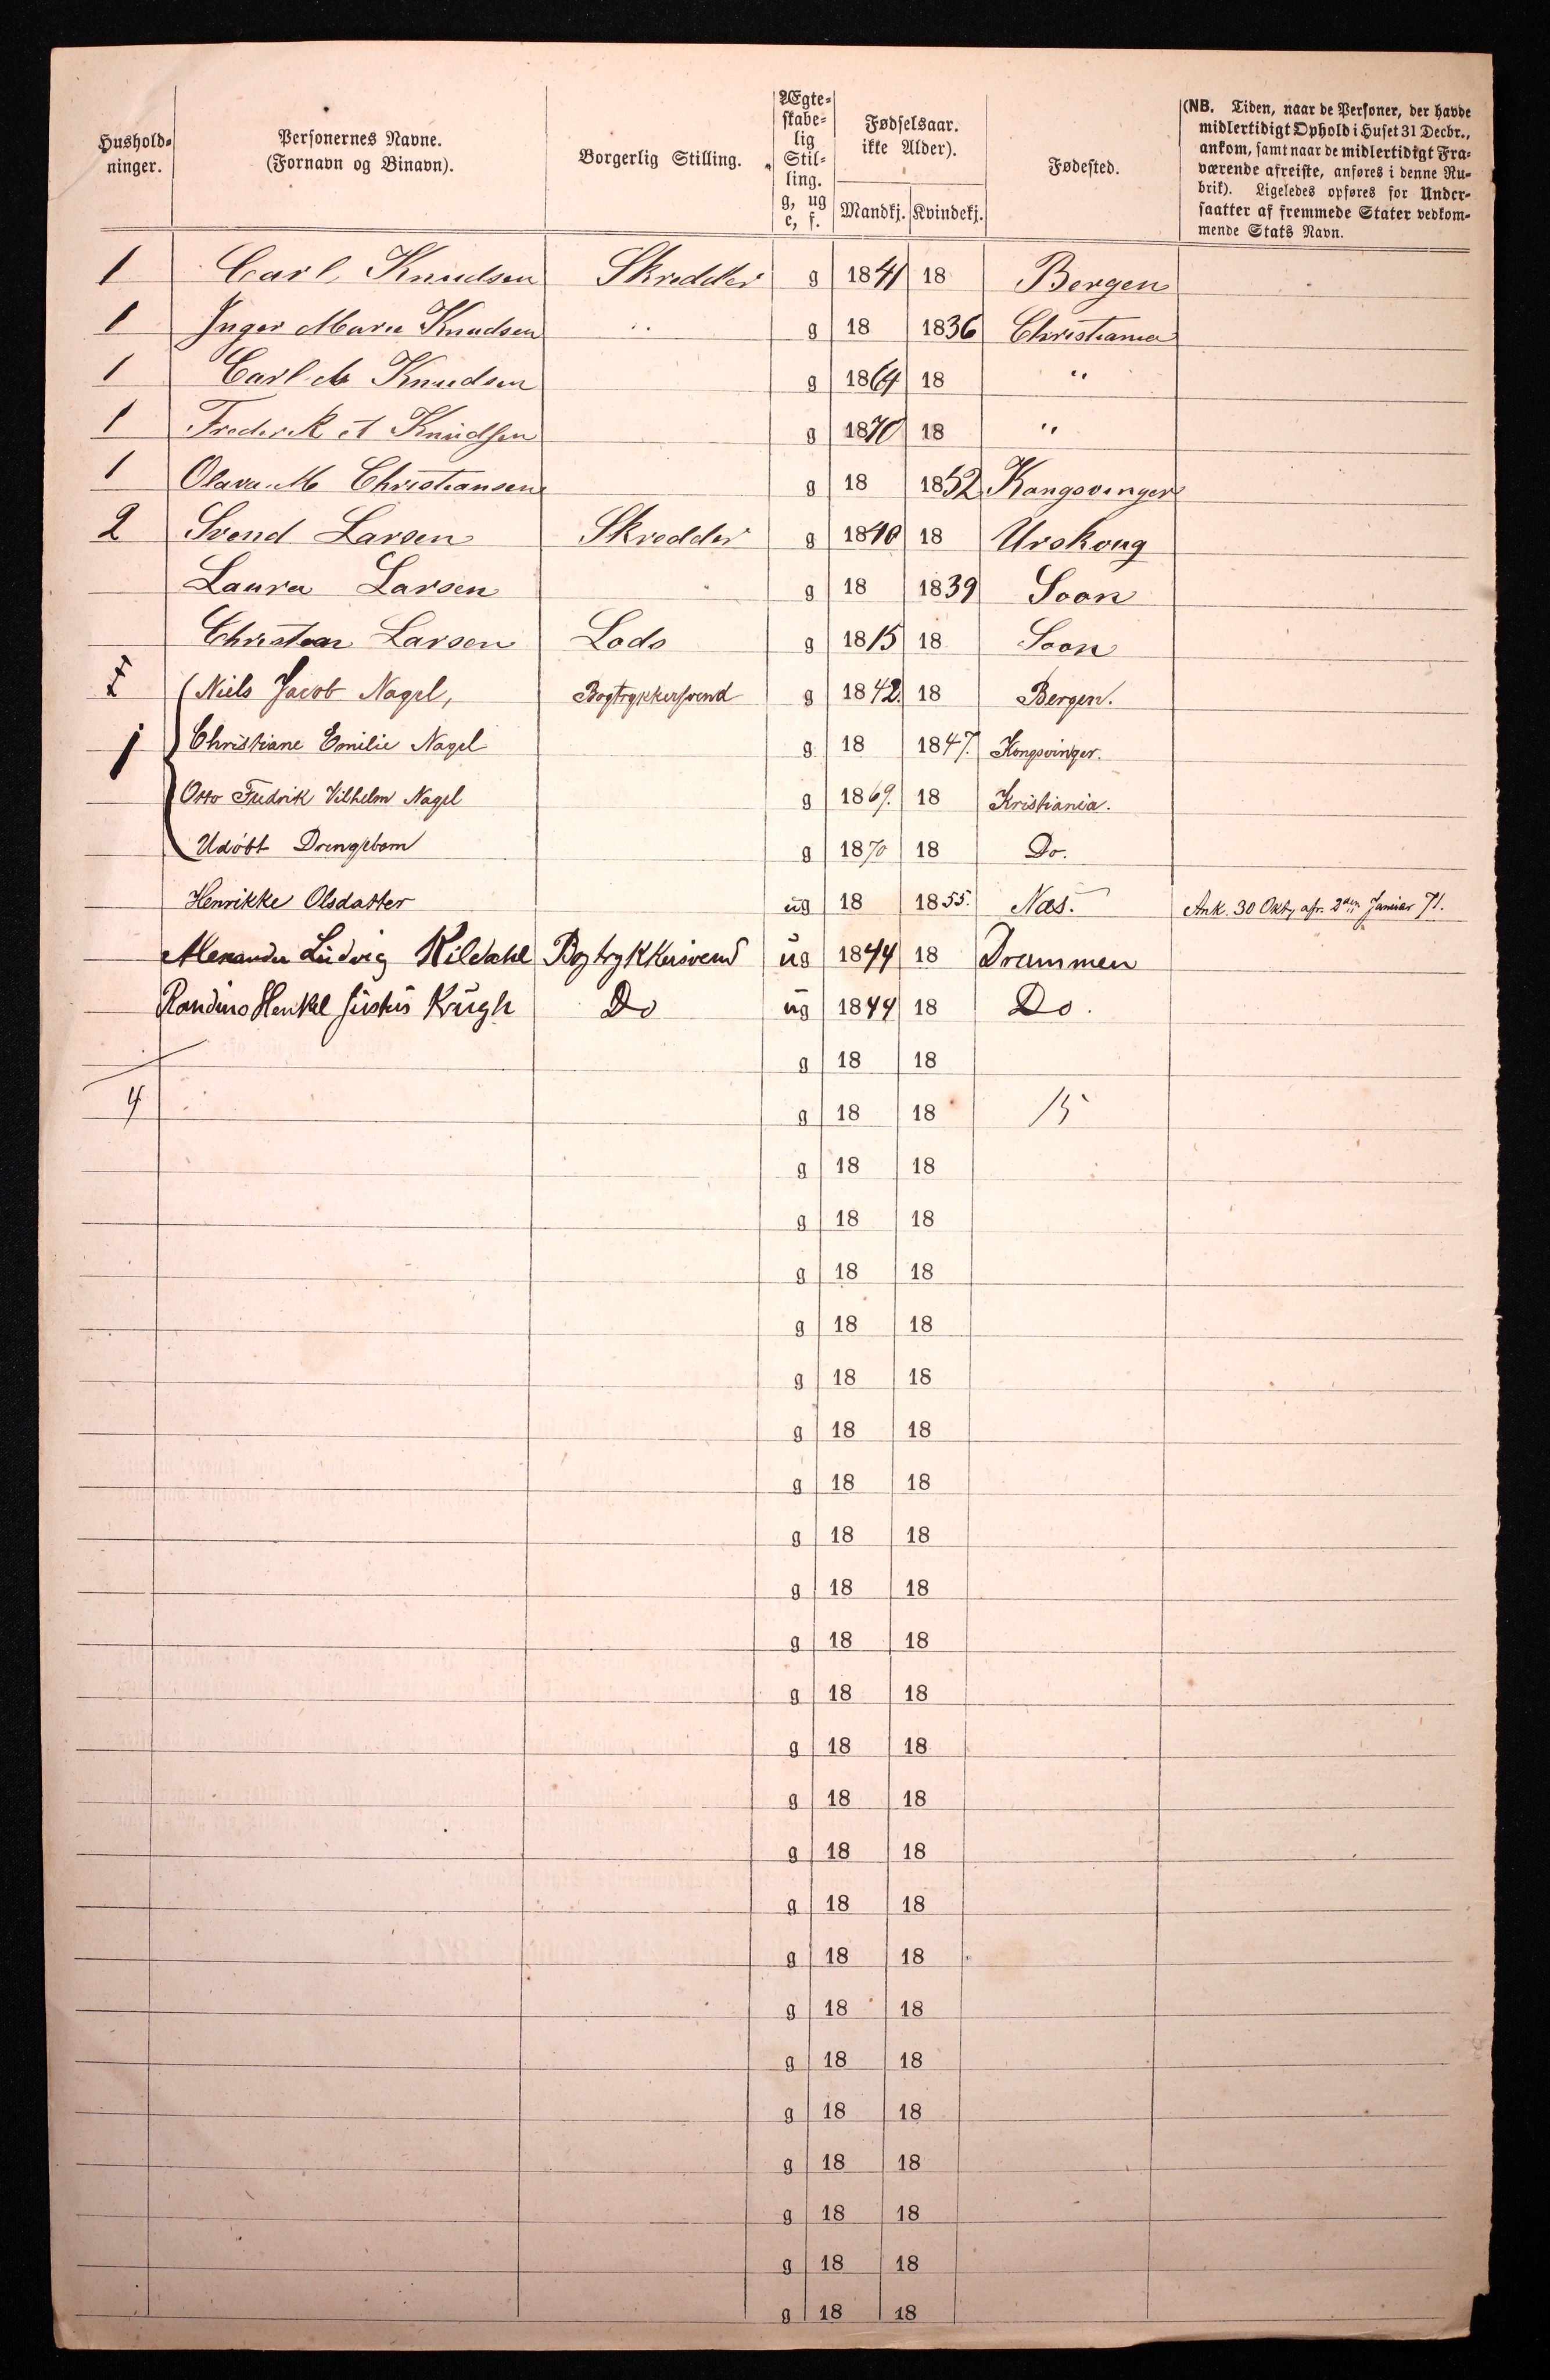 Hushold-
ninger.
Personernes Navne.
(Fornavn og Binavn).
Borgerlig Stilling.
Ægte-
skabe-
lig
Stil-
ling.
g, ug
e, f.
Fødselsaar.
ikke Alder).
Mandkj. Kvindekj.
Fødested.
(NB. Tiden, naar de Personer, der havde
midlertidigt Ophold i Huset 31 Decbr.,
ankom, samt naar de midlertidigt Fra-
værende afreiste, anføres i denne Ru-
brik). Ligeledes opføres for Under-
saatter af fremmede Stater vedkom-
mende Stats Navn.
1 Carl Knudsen Skredder g 1841 18 Bergen
1 Inger Marie Knudsen g 18 1836 Christiania
1 Carl M Knudsen g 1864 18 "
1 Frederik A Knudsen g 1870 18 "
1 Olava M Christiansen g 18 1852 Kongsvinger
2 Svend Larsen Skredder g 1840 18 Urskoug
Laura Larsen g 18 1839 Soon
Christian Larsen Lods g 1815 18 Soon
Niels Jacob Nagel, Bogtrykkersvend g 1842. 18 Bergen.
1 Christiane Emilie Nagel g 18 1847. Kongsvinger.
Otto Fredrik Vilhelm Nagel g 1869. 18 Kristiania.
Udöbt Drengebarn g 1870 18 Do.
Henrikke Olsdatter ug 18 1855. Næs. Ank. 30 Okt, afr. 2den Januar 71.
Alexander Ludvig Kildahl Bogtrykkersvend ug 1844 18 Drammen
Henkel Justus Krugh Do ug 1844 18 Do.
g 18 18
4 g 18 18 15
g 18 18
g 18 18
g 18 18
g 18 18
g 18 18
g 18 18
g 18 18
g 18 18
g 18 18
g 18 18
g 18 18
g 18 18
g 18 18
g 18 18
g 18 18
g 18 18
g 18 18
g 18 18
g 18 18
g 18 18
g 18 18
g 18 18
g 18 18